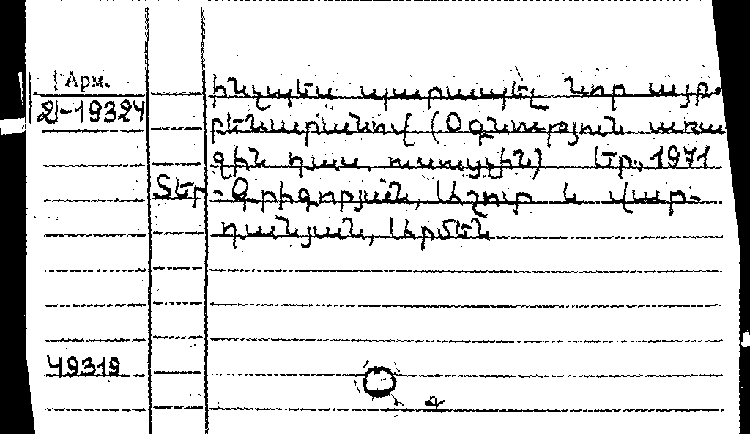 Арм.
2Ι-19324
ինչպես պարապել նոր այբ-
բենարանով (Օգնություն առա
ջին դաս. ուսուցչին) Եր., 1971
Տեր-Գրիգորյան, Աշոտ և Վար-
դանյան, Արմեն
49319